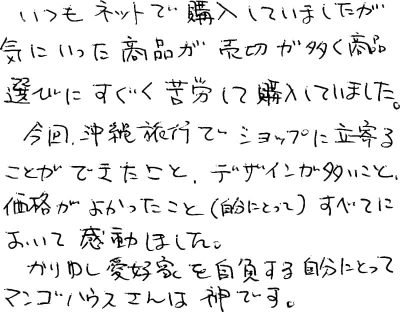 いつもネットで購入していましたが
気にいった商品が売切が多く商品
選びにすごく苦労して購入していました。
今回、沖縄旅行でショップに立寄る
ことができたこと、デザインが多いこと、
価格がよかったこと(自分にとって)すべてに
おいて感動しました。
かりゆし愛好家を自負する自分にとって
マンゴハウスさんは神です。